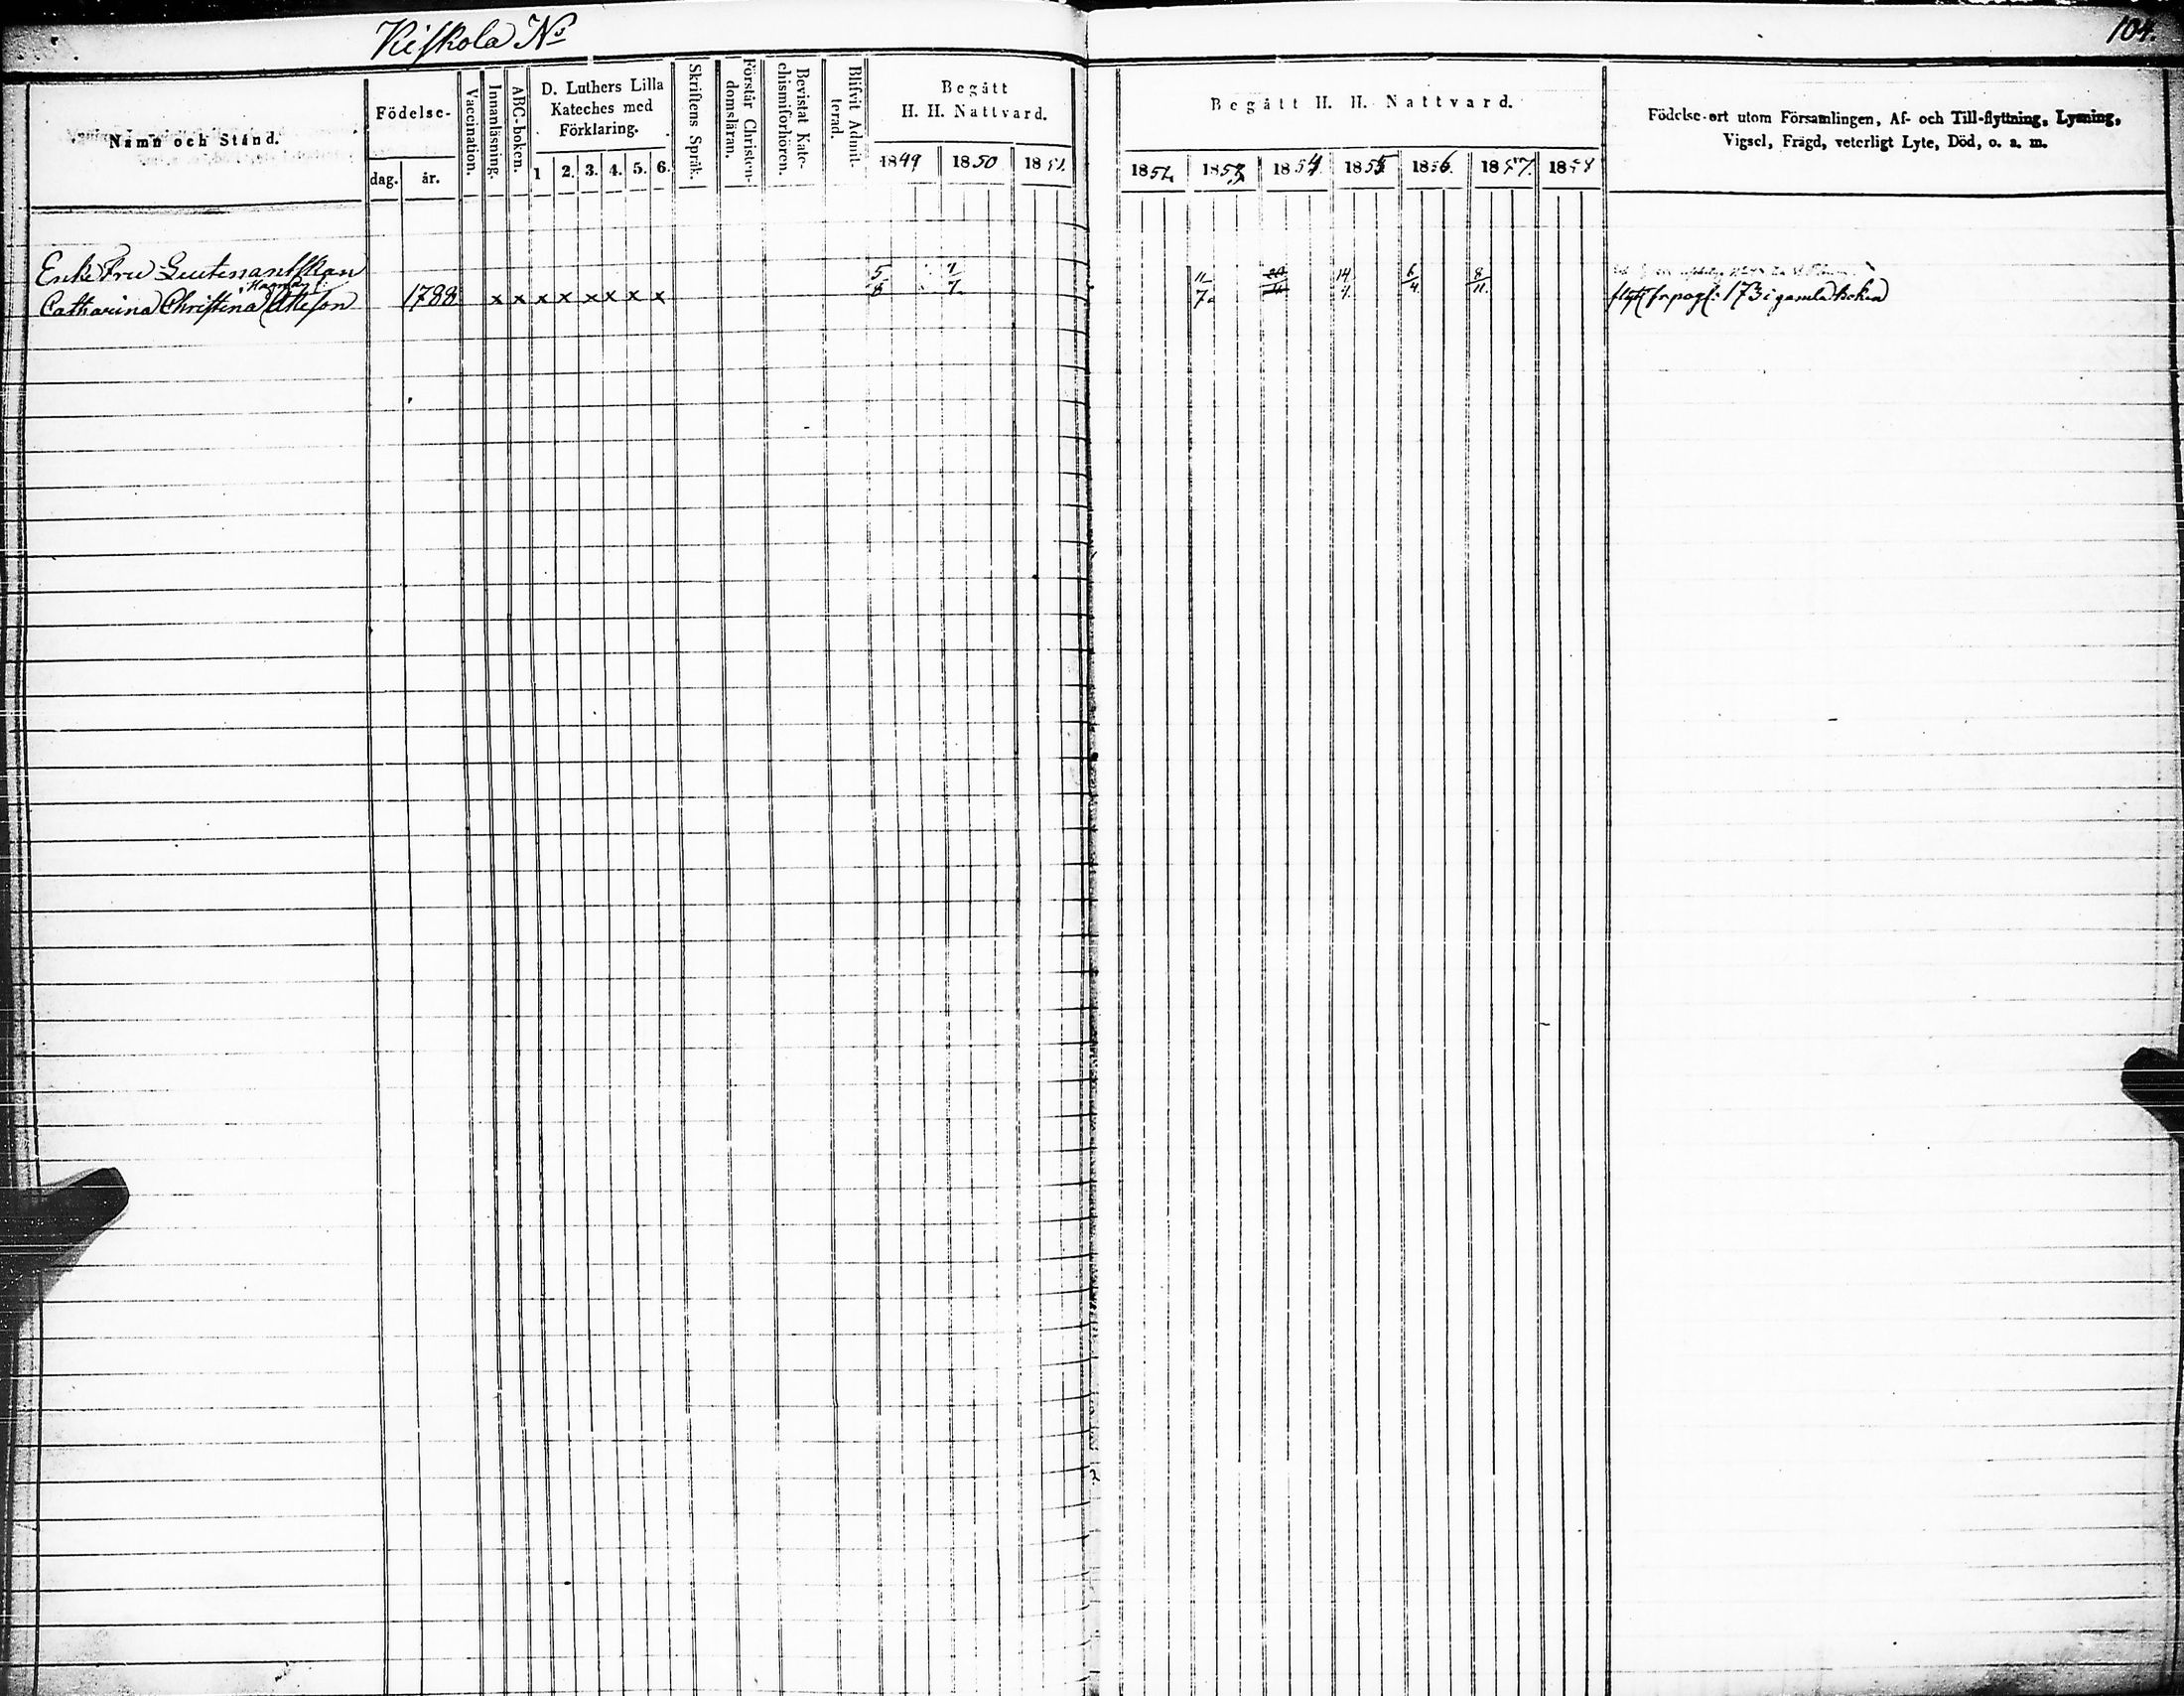 Kiskola No
104.
Namn och Stånd.
Födelse-
dag. år.
Vaccination.
Innanläsning.
ABC-boken.
D. Luthers Lilla
Kateches med
Förklaring.
1 2. 3. 4. 5. 6.
Skriftens Språk.
Förstår Christen-
domsläran.
Bevistat Kate-
chismiförhören.
Blifvit Admit-
terad.
Begått
H. H. Nattvard.
1849 1850 1851.
Begått H. H. Nattvard.
1852. 1853. 1854. 1855 1856. 1857. 1858
Födelse-ort utom Församlingen, Af- och Till-flyttning, Lysning,
Vigsel, Frägd, veterligt Lyte, Död, o. s. m.
Enke Fru Leutenantskan
Catharina Christina 1788 x x x x x x x x 5/8 7/7. 11/7. 14/7. 6/4. 8/11.
flytt fr pag: 173 i gamla boken